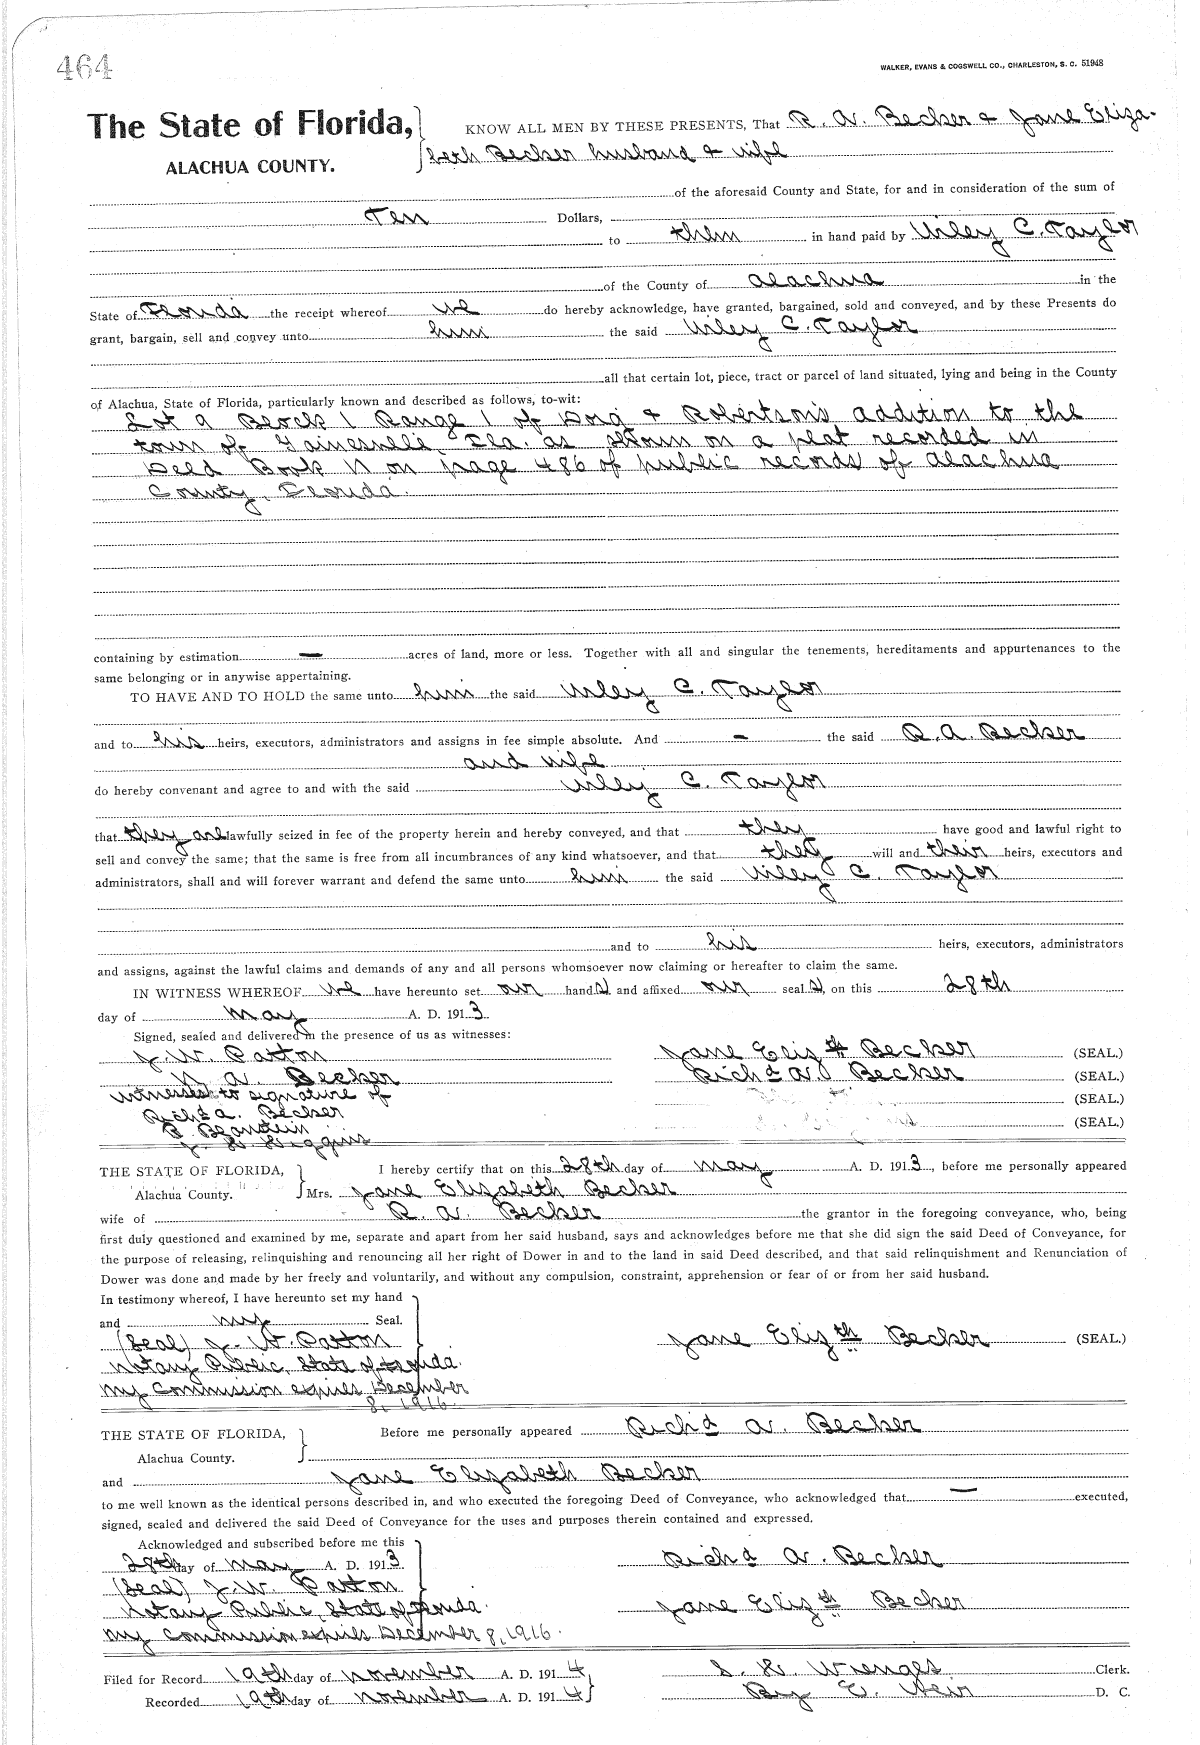 464
WALKER, EVANS & COGSWELL CO., CHARLESTON, S. C. 51948
The State of Florida,
ALACHUA COUNTY.
KNOW ALL MEN BY THESE PRESENTS, That R. W. Becker & Jane Eliza-
beth Becker husband & wife
of the aforesaid County and State, for and in consideration of the sum of
Ten Dollars,
to them in hand paid by Wiley C. Taylor
of the County of Alachua in the
State of Florida the receipt whereof we do hereby acknowledge, have granted, bargained, sold and conveyed, and by these Presents do
grant, bargain, sell and convey unto him the said Wiley C. Taylor
all that certain lot, piece, tract or parcel of land situated, lying and being in the County
of Alachua, State of Florida, particularly known and described as follows, to-wit:
Lot 9 Block 1 Range 1 of Doig & Robertson's addition to the
town of Gainesville, Fla. as shown on a plat recorded in
Deed Book N on page 486 of public records of Alachua
County, Florida.
containing by estimation — acres of land, more or less. Together with all and singular the tenements, hereditaments and appurtenances to the
same belonging or in anywise appertaining.
TO HAVE AND TO HOLD the same unto him the said Wiley C. Taylor
and to his heirs, executors, administrators and assigns in fee simple absolute. And — the said R. A. Becker
and wife
do hereby convenant and agree to and with the said Wiley C. Taylor
that they are lawfully seized in fee of the property herein and hereby conveyed, and that they have good and lawful right to
sell and convey the same; that the same is free from all incumbrances of any kind whatsoever, and that they will and their heirs, executors and
administrators, shall and will forever warrant and defend the same unto him the said Wiley C. Taylor
and to his heirs, executors, administrators
and assigns, against the lawful claims and demands of any and all persons whomsoever now claiming or hereafter to claim the same.
IN WITNESS WHEREOF we have hereunto set our hand s and affixed our seal s, on this 28th
day of May A. D. 191 3
Signed, sealed and delivered in the presence of us as witnesses:
J. W. Patton Jane Elizth Becker (SEAL.)
A. Becker Richd W. Becker (SEAL.)
Witnesses to signature of (SEAL.)
Richd A. Becker
(SEAL.)
THE STATE OF FLORIDA, I hereby certify that on this 28th day of May A. D. 191 3, before me personally appeared
Alachua County. Mrs. Jane Elizabeth Becker
wife of R. W. Becker the grantor in the foregoing conveyance, who, being
first duly questioned and examined by me, separate and apart from her said husband, says and acknowledges before me that she did sign the said Deed of Conveyance, for
the purpose of releasing, relinquishing and renouncing all her right of Dower in and to the land in said Deed described, and that said relinquishment and Renunciation of
Dower was done and made by her freely and voluntarily, and without any compulsion, constraint, apprehension or fear of or from her said husband.
In testimony whereof, I have hereunto set my hand
and my Seal.
(Seal) J. W. Patton Jane Elizth Becker (SEAL.)
Notary Public, State of Florida.
My Commission expires December
8, 1916.
THE STATE OF FLORIDA, Before me personally appeared Richd W. Becker
Alachua County.
and Jane Elizabeth Becker
to me well known as the identical persons described in, and who executed the foregoing Deed of Conveyance, who acknowledged that — executed,
signed, sealed and delivered the said Deed of Conveyance for the uses and purposes therein contained and expressed.
Acknowledged and subscribed before me this
28th day of May A. D. 191 3. Richd W. Becker
(Seal) J. W. Patton
Notary Public, State of Florida. Jane Elizth Becker
My commission expires December 8, 1916.
Filed for Record 19th day of November A. D. 191 4 S. H. Wienges Clerk.
Recorded 19th day of November A. D. 191 4 By E. Weir D. C.